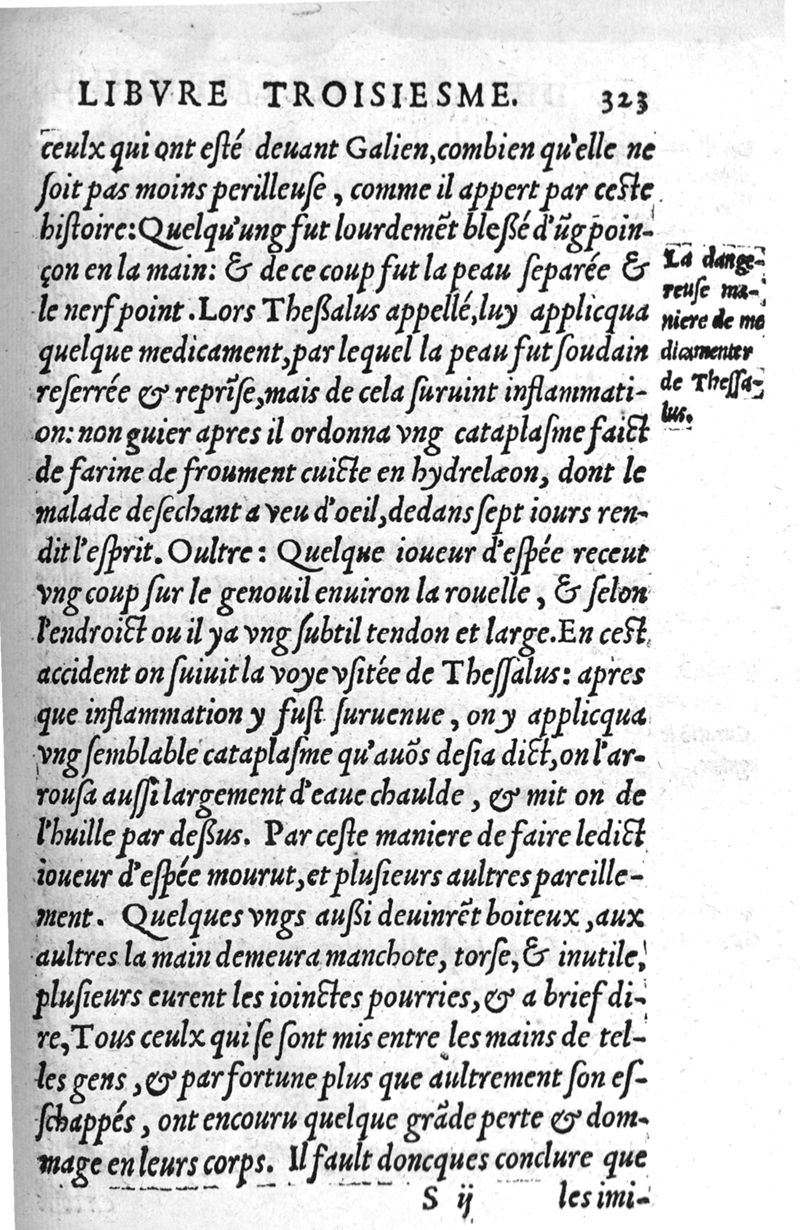 LIBVRE TROISIESME. 323
ceulx qui ont esté deuant Galien,combien qu'elle ne
ſoit pas moins perilleuſe , comme il appert par ceſte
hiſtoire:Quelqu'ung fut lourdemẽt bleßé d'ũg poin-
çon en la main: & de ce coup fut la peau ſeparée &
le nerf point.Lors Theßalus appellé,luy applicqua
quelque medicament,par lequel la peau fut ſoudain
reſerrée & reprîſe,mais de cela ſuruint inflammati-
on: non guier apres il ordonna vng cataplaſme faict
de farine de froument cuicte en hydrelæon, dont le
malade deſechant a veu d'oeil,dedans ſept iours ren-
dit l'eſprit. Oultre : Quelque ioueur d'eſpée receut
vng coup ſur le genouil enuiron la rouelle , & ſelon
l'endroict ou il ya vng ſubtil tendon et large.En ceſt
accident on ſuiuit la voye vſitée de Theſſalus: apres
que inflammation y fuſt ſuruenue , on y applicqua
vng ſemblable cataplaſme qu'auõs deſia dict,on l'ar-
rouſa auſſi largement d'eaue chaulde , & mit on de
l'huille par deßus. Par ceſte maniere de faire ledict
ioueur d'eſpée mourut,et pluſieurs aultres pareille-
ment. Quelques vngs außi deuinrẽt boiteux ,aux
aultres la main demeura manchote, torſe,& inutile,
pluſieurs eurent les ioinctes pourries,& a brief di-
re,Tous ceulx qui ſe ſont mis entre les mains de tel-
les gens ,& par fortune plus que aultrement ſon eſ-
ſchappés , ont encouru quelque grãde perte & dom-
mage en leurs corps. Il fault doncques conclure que
S ij les imi-
La dange-
reuſe ma-
niere de me
dicamenter
de Theſſa-
lus.